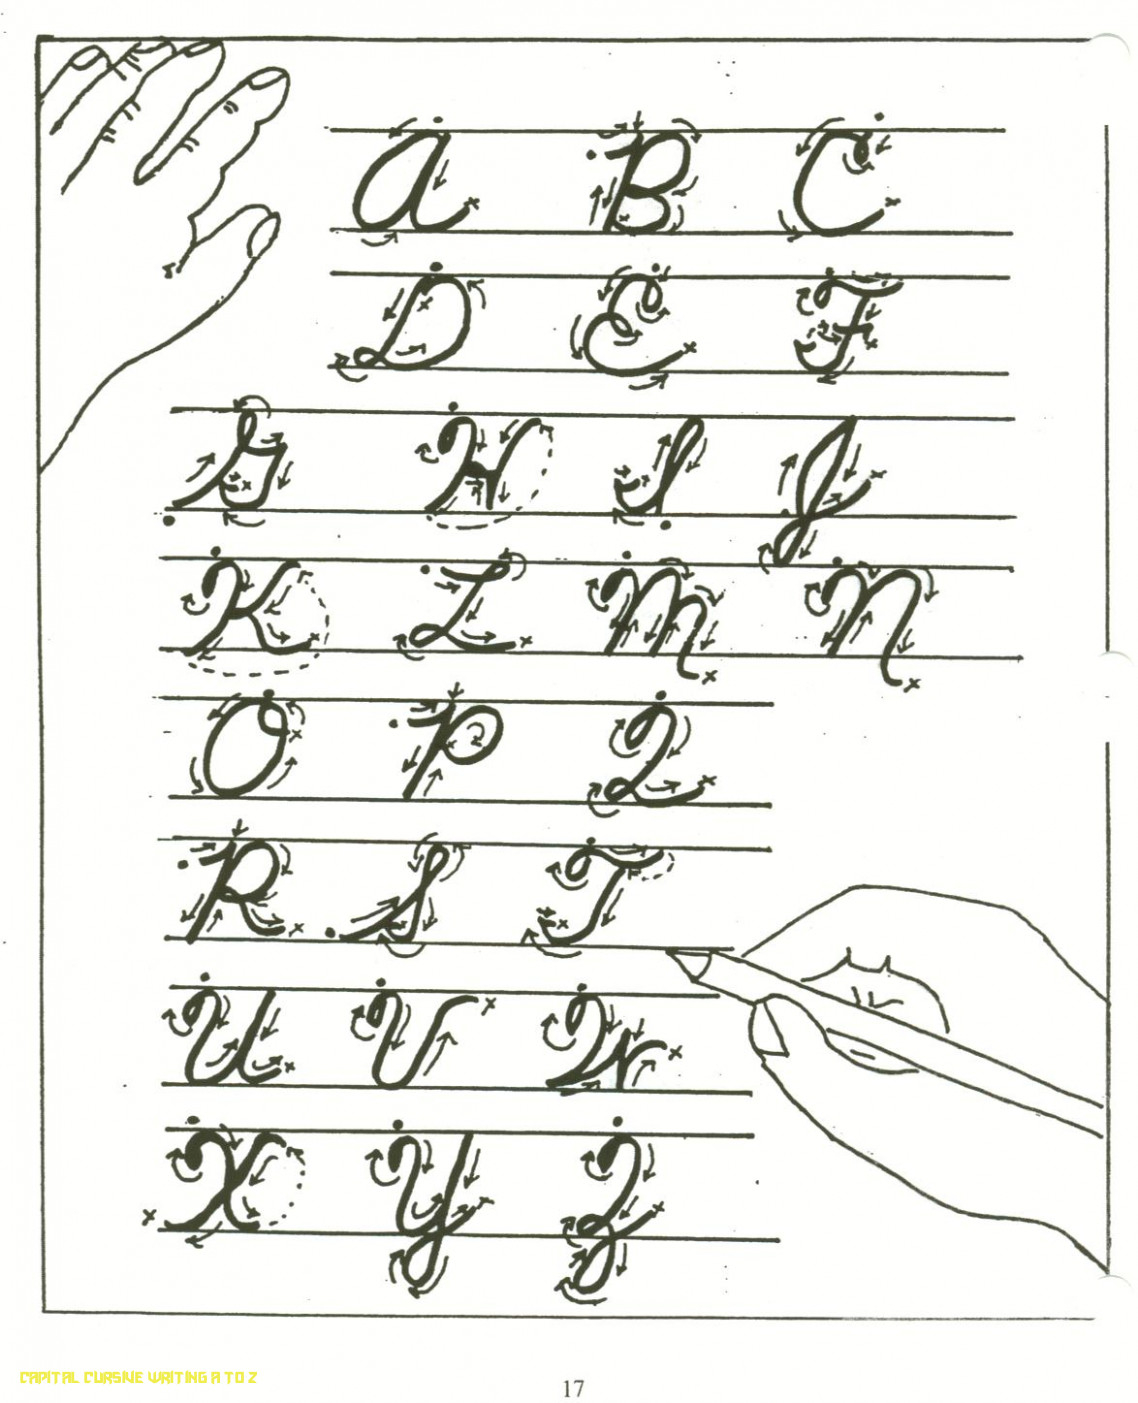 A B C
D E F
G H I J
K L M N
O P Q
R S T
U V W
X Y Z
CAPITAL CURSIVE WRITING A TO Z
17